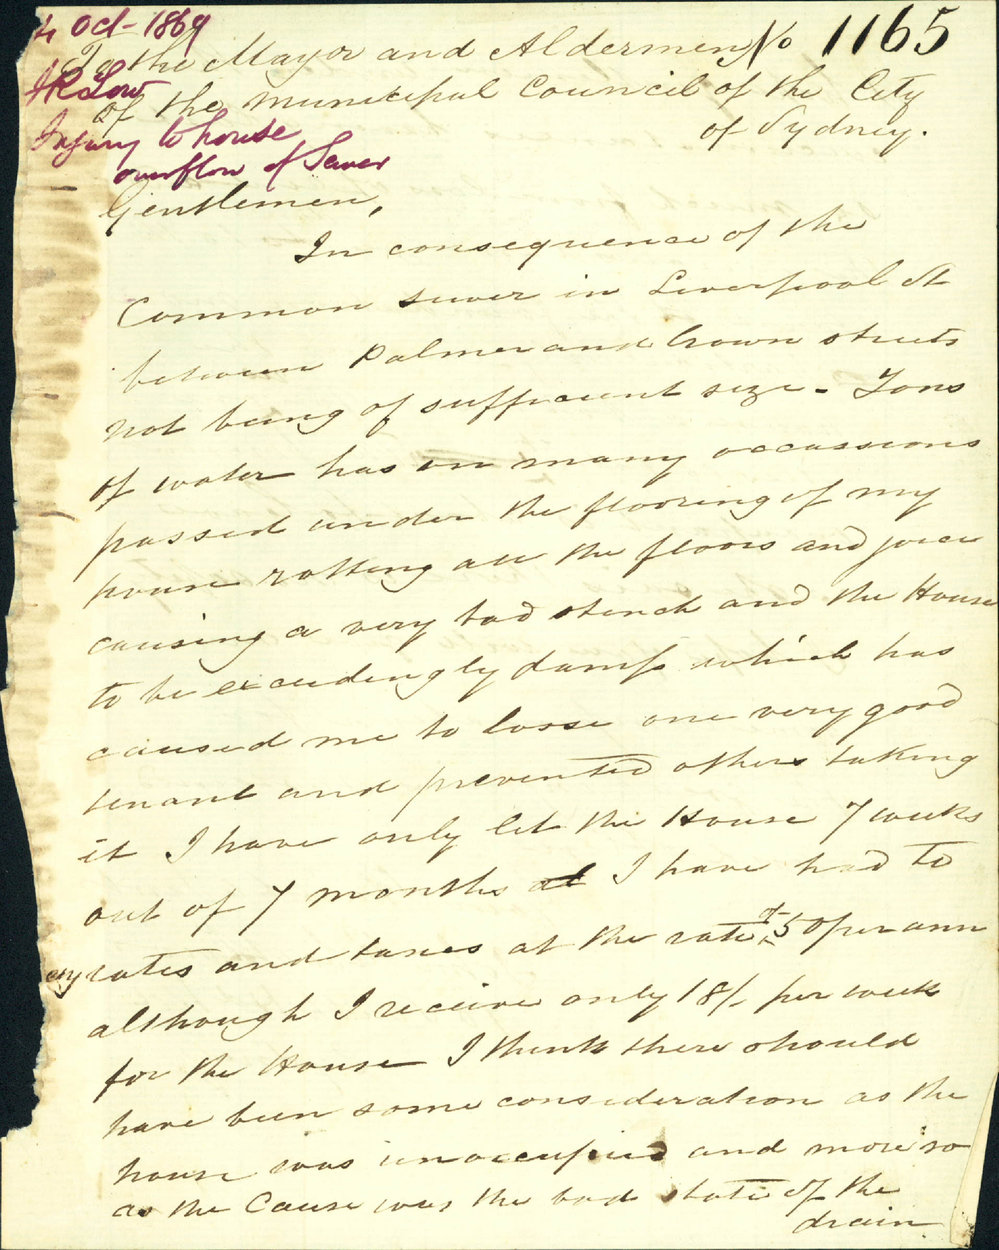 4 Oct- 1869
No 1165
To the Mayor and Aldermen
H C Low
of the Municipal Council of the City
of Sydney.
Injury to house
overflow of Sewer
Gentlemen,
In consequence of the
Common sewer in Liverpool St
between Palmer and Crown streets
not being of sufficient size - Tons
of water has on many occassions
passed under the flooring of my
house rotting all the floors and joice
causing a very bad stench and the House
to be exceedingly damp which has
caused me to loose one very good
tenant and prevented others taking
it I have only let the House 7 weeks
out of 7 months I have had to
rates and taxes at the rate of 50 per ann
although I receive only 18/- per week
for the House I think there should
have been some consideration as the
house was unoccupied and more so
as the Cause was the bad state of the
drain